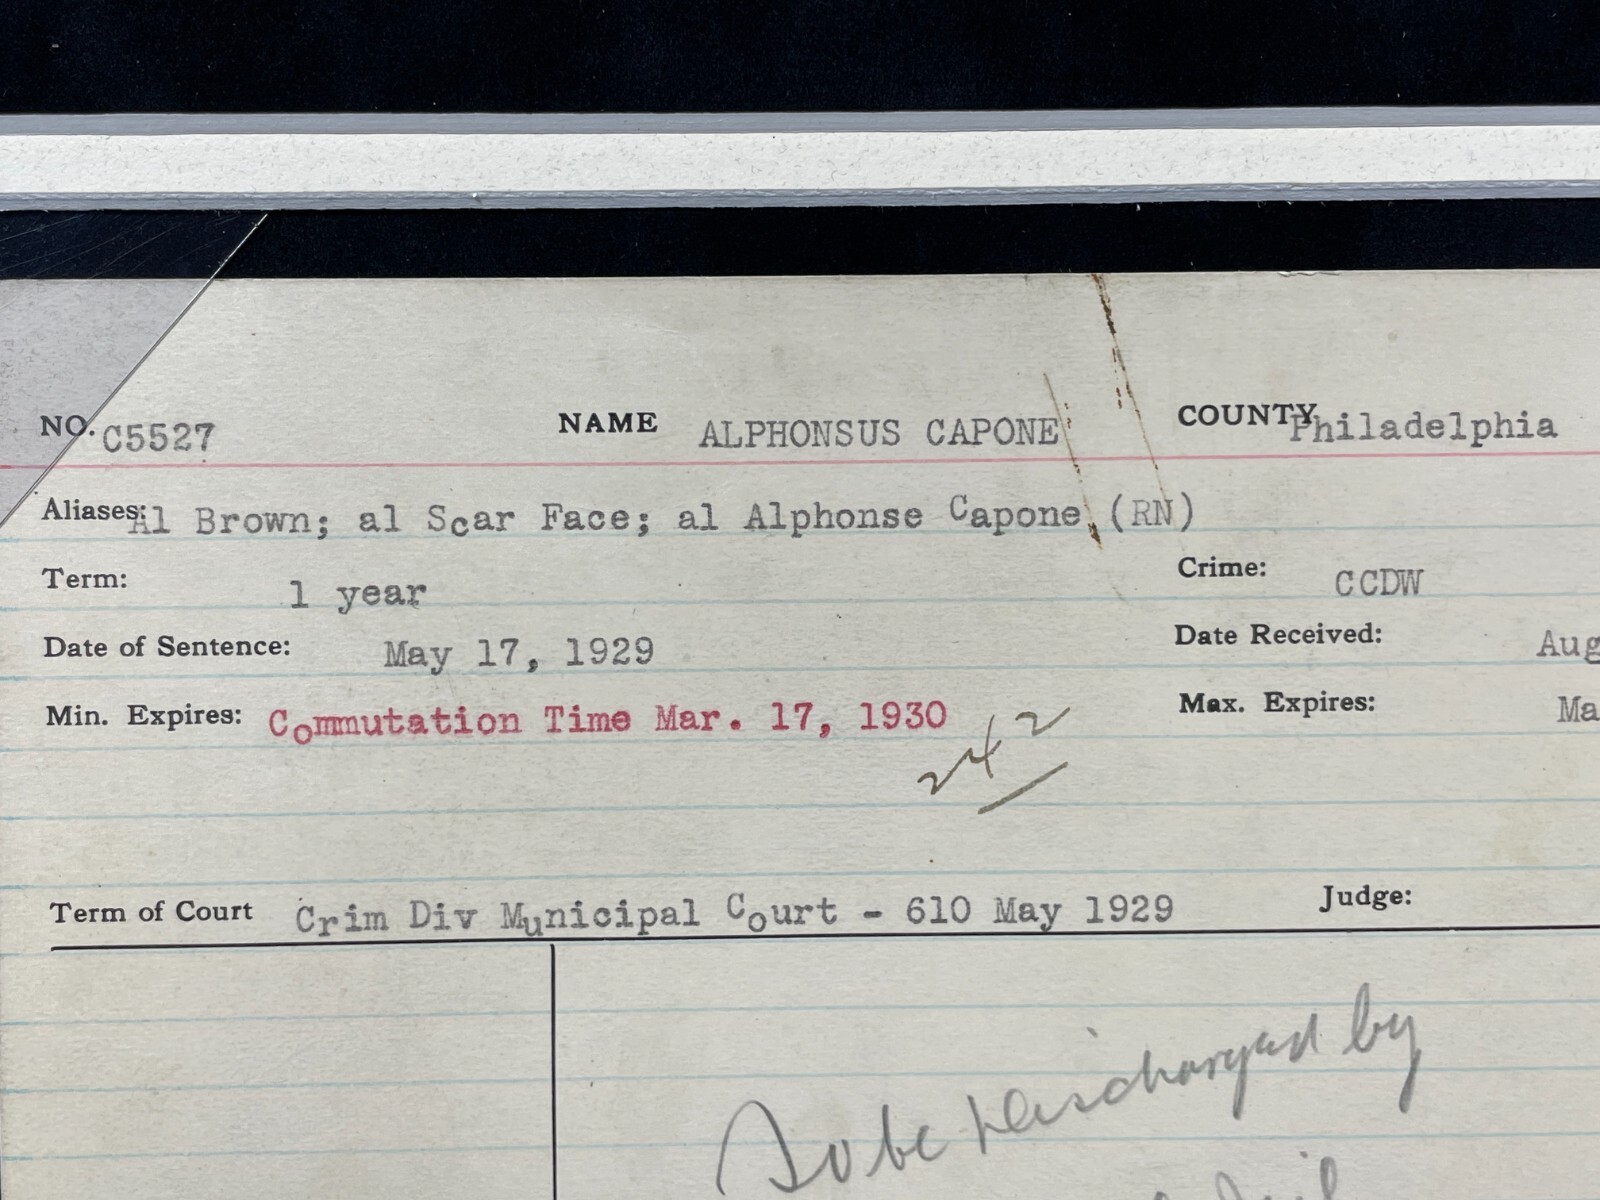 NO. C5527 NAME ALPHONSUS CAPONE COUNTY Philadelphia
Aliases: Al Brown; al Scar Face; al Alphonse Capone (RN)
Term: 1 year Crime: CCDW
Date of Sentence: May 17, 1929 Date Received: Aug
Min. Expires: Commutation Time Mar. 17, 1930 Max. Expires: Ma
242
Term of Court Crim Div Municipal Court - 610 May 1929 Judge:
To be discharged by